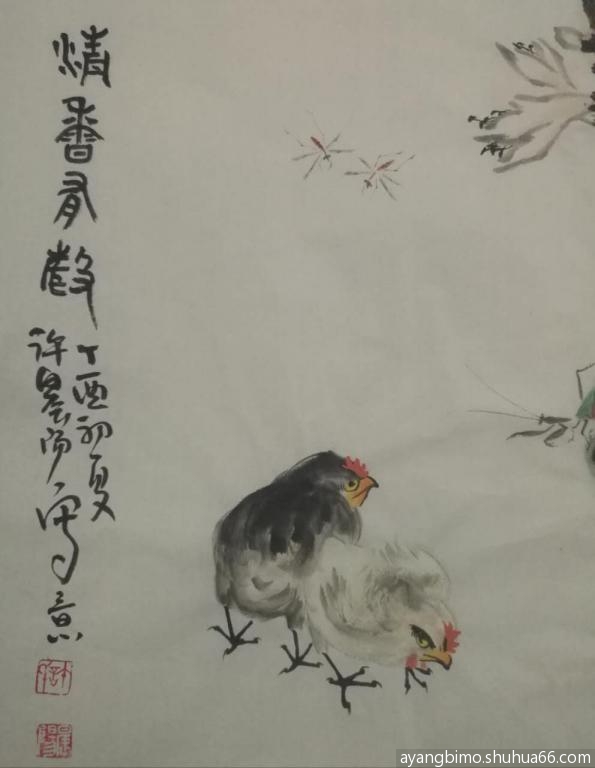 清香有
丁酉初夏
许晨阳写意
许
ayangbimo.shuhua66.com